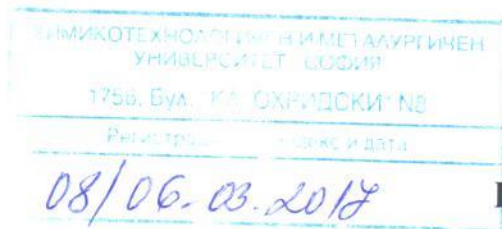 ХИМИКОТЕХНОЛОГИЧЕН И МЕТАЛУРГИЧЕН
УНИВЕРСИТЕТ СОФИЯ
1756, Бул. "КЛ. ОХРИДСКИ" №8
индекс и дата
08/06.03.2017